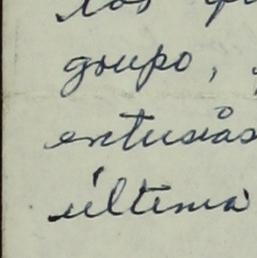 los
grupo,
entusiás
última